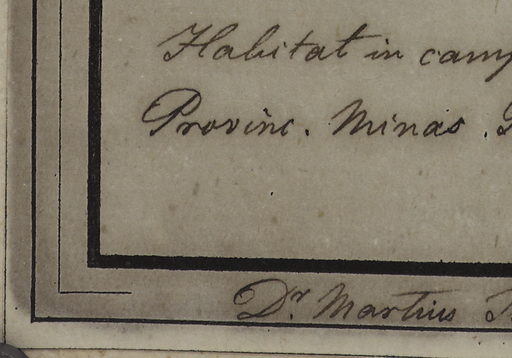 Habitat in camp
Provinc. Minas .
Dr. Martius